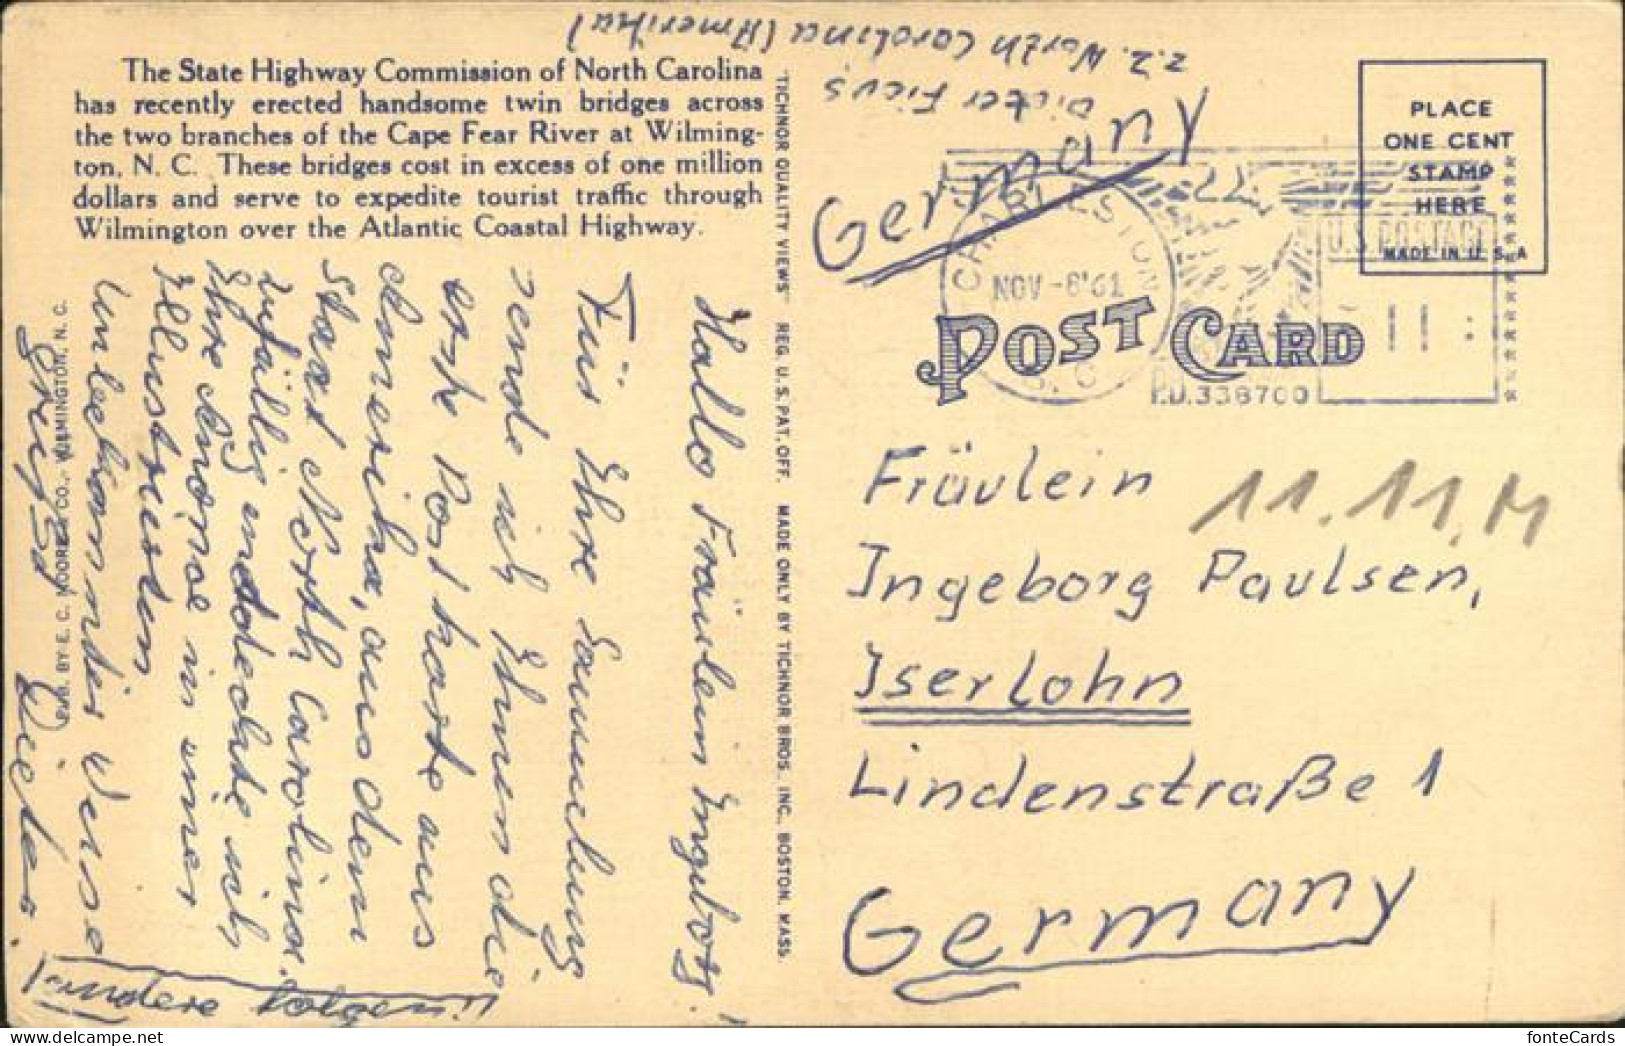 The State Highway Commission of North Carolina
has recently erected handsome twin bridges across
the two branches of the Cape Fear River at Wilming-
ton, N. C. These bridges cost in excess of one million
dollars and serve to expedite tourist traffic through
Wilmington over the Atlantic Coastal Highway.
Hallo Fräulein Ingeborg!
Für Ihre Sammlung
sende ich Ihnen die
erste Postkarte aus
Amerika, aus dem
Staat North Carolina.
Zufällig entdeckte ich
Ihre Annonce in einer
Illustrierten
unbekannter Weise
Dieter.
"andere folgen"
PUB. BY E. C. MOORE CO., WILMINGTON, N. C.
"TICHNOR QUALITY VIEWS" REG. U. S. PAT. OFF. MADE ONLY BY TICHNOR BROS. INC., BOSTON, MASS.
Dieter Ficus
z.Z. North Carolina (Amerika)
Germany
CHARLESTON
NOV -8'61
S. C.
U.S. POSTAGE
P.D. 338700
PLACE
ONE CENT
STAMP
HERE
MADE IN U. S. A
POST CARD
Fräulein
11.11.M
Ingeborg Paulsen,
Iserlohn
Lindenstraße 1
Germany
fonteCards